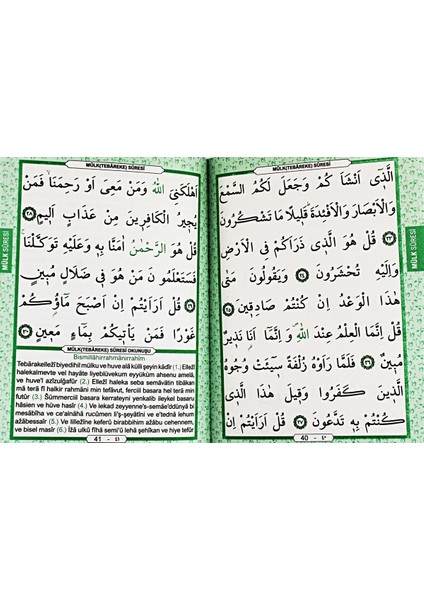 MÜLK(TEBÂREKE) SÛRESİ
اَلَّذٖٓي اَنْشَاَ كُمْ وَجَعَلَ لَكُمُ السَّمْعَ
وَالْاَبْصَارَ وَالْاَفْـِٔدَةَ قَلٖيلًا مَا تَشْكُرُونَ
﴿٢٣﴾ قُلْ هُوَ الَّذٖي ذَرَاَكُمْ فِي الْاَرْضِ
وَاِلَيْهِ تُحْشَرُونَ ﴿٢٤﴾ وَيَقُولُونَ مَتٰى
هٰذَا الْوَعْدُ اِنْ كُنْتُمْ صَادِقٖينَ ﴿٢٥﴾
قُلْ اِنَّمَا الْعِلْمُ عِنْدَ اللّٰهِ وَ اِنَّمَٓا اَنَا۬ نَذٖيرٌ
مُبٖينٌ ﴿٢٦﴾ فَلَمَّا رَاَوْهُ زُلْفَةً سٖٓيـَٔتْ وُجُوهُ
الَّذٖينَ كَفَرُوا وَقٖيلَ هٰذَا الَّذٖي
كُنْتُمْ بِهٖ تَدَّعُونَ ﴿٢٧﴾ قُلْ اَرَاَيْتُمْ اِنْ
40 - ٤٠
MÜLK SÛRESİ
MÜLK(TEBÂREKE) SÛRESİ
اَهْلَكَنِيَ اللّٰهُ وَمَنْ مَعِيَ اَوْ رَحِمَنَا فَمَنْ
يُجٖيرُ الْكَافِرٖينَ مِنْ عَذَابٍ اَلٖيمٍ ﴿٢٨﴾
قُلْ هُوَ الرَّحْمٰنُ اٰمَنَّا بِهٖ وَعَلَيْهِ تَوَكَّلْنَا
فَسَتَعْلَمُونَ مَنْ هُوَ فٖي ضَلَالٍ مُبٖينٍ
﴿٢٩﴾ قُلْ اَرَاَيْتُمْ اِنْ اَصْبَحَ مَٓاؤُكُمْ
غَوْرًا فَمَنْ يَأْتٖيكُمْ بِمَٓاءٍ مَعٖينٍ ﴿٣٠﴾
MÜLK(TEBÂREKE) SÛRESİ OKUNUŞU
Bismillâhirrahmânirrahîm
Tebârakellezî biyedihil mülku ve huve alâ külli şeyin kadîr (1.) Ellezî
halekalmevte vel hayâte liyeblüvekum eyyüküm ahsenu amelâ,
ve huve'l azîzulğafûr (2.) Ellezî haleka seba semâvatin tıbâkan
mâ terâ fî halkir rahmâni min tefâvut, ferciıl basara hel terâ min
futûr (3.) Sümmerciıl basara kerrateyni yenkalib ileykel basaru
hâsien ve hüve hâsir (4.) Ve lekad zeyyenne's-semâe'ddünyâ bi
mesâbîha ve ce'alnâhâ rucûmen li'ş-şeyâtîni ve e'tednâ lehum
azâbessaîr (5.) Ve lillezîne keferû birabbihim azâbu cehennem,
ve bisel masîr (6.) İzâ ulkû fîhâ semi'û lehâ şehîkan ve hiye tefûr
41 - ٤١
MÜLK SÛRESİ